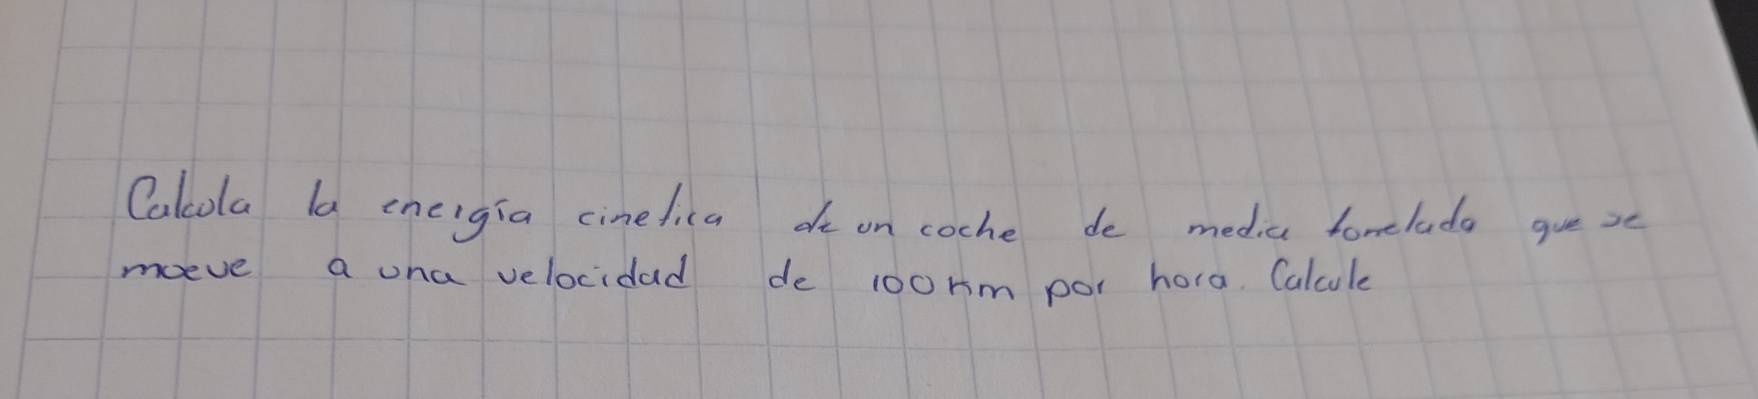 Calcula la energía cinetica de un coche de media tonelada que se
mueve a una velocidad de 100 km por hora. Calcule